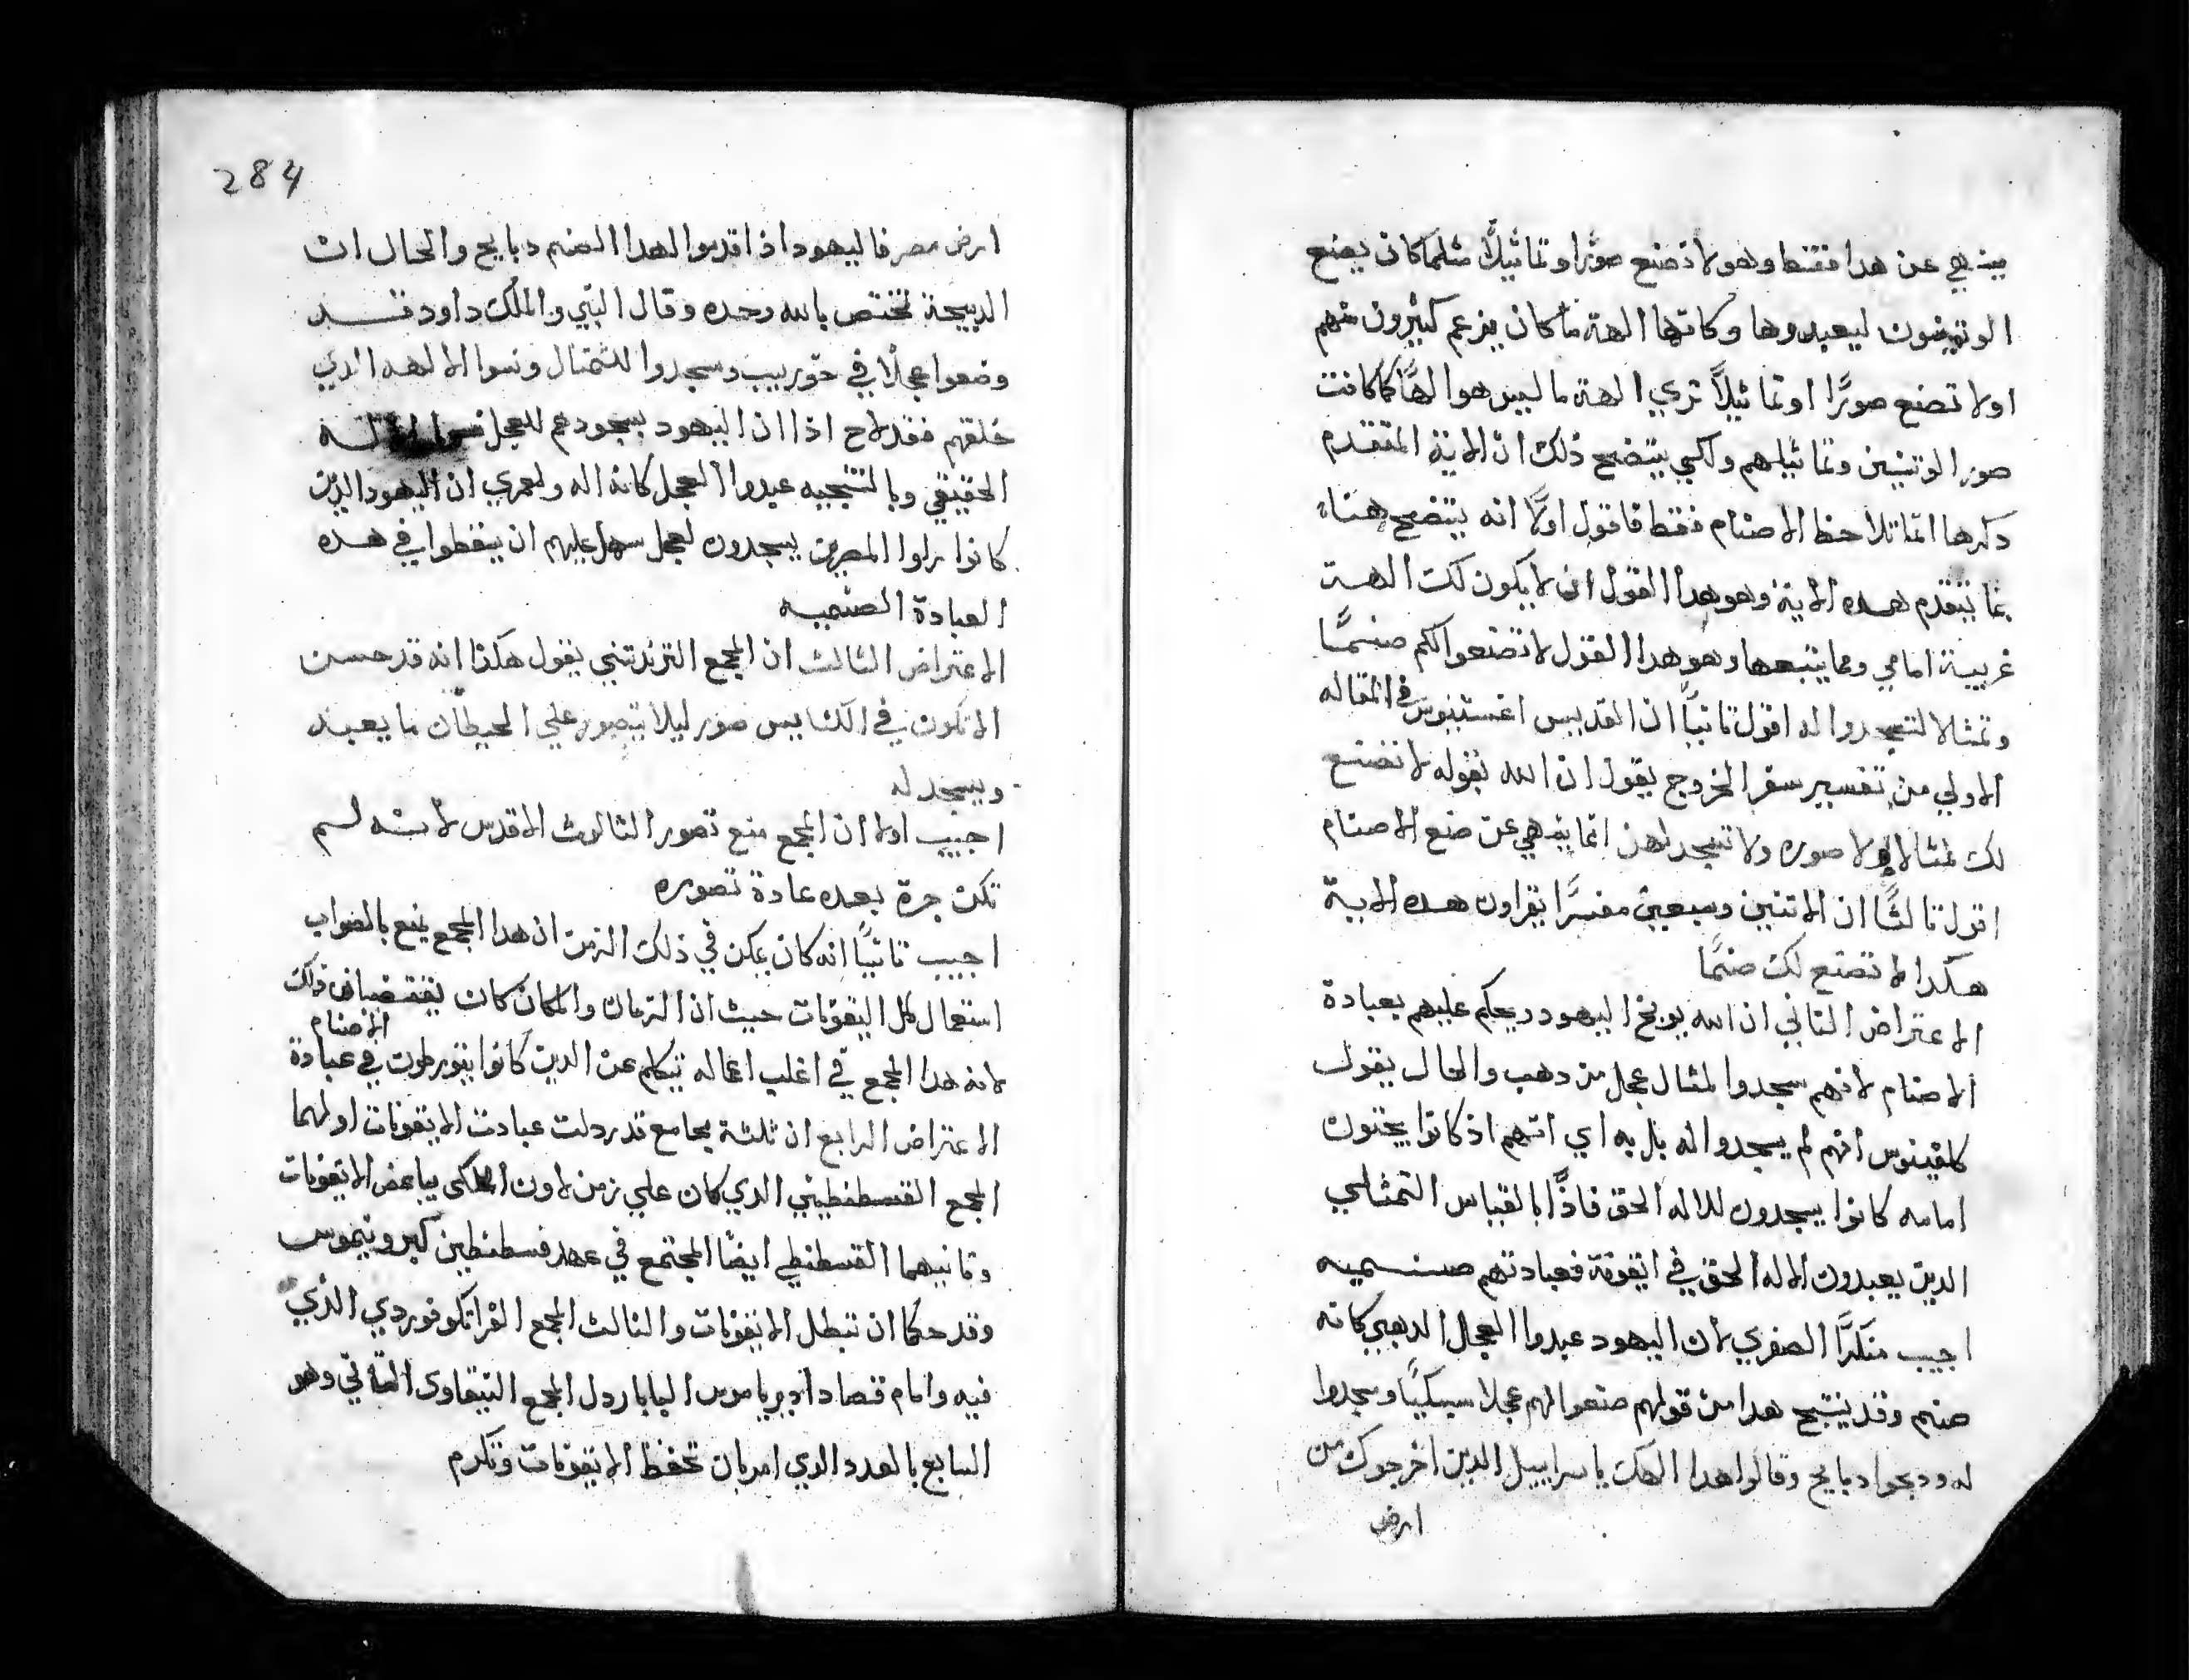 ينهي عن هدا فقط وهو لا تصنع صورًا وتماثيلًا مثلما كان يصنع
الوتنيون ليعبدوها وكانها الهة ما كان يزعم كثيرون منهم
اولا تصنع صورًا او تماثيلًا تري الهة ما ليس هو الهًا كما كانت
صور الوتنيين وتماثيلهم ولكي يتضح ذلك ان الاية المتقدم
دكرها انما تلاحظ الاصنام فقط فاقول اولًا انه يتضح هناء
بما يتقدم هده الاية وهو هدا القول ان لا يكون لك الهة
غريبة امامي ومما يتبعها وهو هدا القول لا تصنعوا لكم صنمًا
وتمثالا لتسجدوا له اقول تانيًا ان القديس اغستينوس في المقاله
الاولي من تفسير سفر الخروج يقول ان الله بقوله لا تصنع
لك تمثالا ولا صوره ولا تسجد لهن انما ينهي عن صنع الاصنام
اقول تالثًا ان الاتنين وسبعين مفسرًا يقراون هده الاية
هكدا لا تصنع لك صنمًا
الاعتراض التاني ان الله يوبخ اليهود ويحكم عليهم بعبادة
الاصنام لانهم سجدوا لمثال عجل من دهب والحال يقول
كلفينوس انهم لم يسجدوا له بل به اي انهم اذ كانوا يجتون
امامه كانوا يسجدون للاله الحق فاذًا بالقياس التمثالي
الدين يعبدون الاله الحق في ايقونة فعبادتهم صنميه
اجيب منكرًا الصغري لان اليهود عبدوا العجل الدهبي كانه
صنم وقد ينتج هدا من قولهم صنعوا لهم عجلا سبيكيًا وسجدوا
له ودبحوا دبايح وقالوا هدا الهك يا سراييل الدين اخرجوك من
ارض
284
ارض مصر فاليهود اذا قدموا لهدا الصنم دبايح والحال ان
الدبيحة تختص بالله وحده وقال النبي والملك داود قد
وضعوا عجلًا في حوريب وسجدوا للتمتال ونسوا الالهه الدي
خلقهم فقد لاح اذا ان اليهود بسجودهم للعجل نسوا الاله
الحقيقي وبالنتيجيه عبدوا العجل كانه اله ولعمري ان اليهود الدين
كانوا راوا المصريين يسجدون لعجل سهل عليهم ان يسقطوا في هده
العبادة الصنميه
الاعتراض الثالث ان المجمع الترندتني يقول هكذا انه قد حسن
الا تكون في الكنايس صور ليلا يتصور علي الحيطان ما يعبد
ويسجد له
اجيب اولا ان المجمع منع تصور التالوث الاقدس لانه لم
تكن جرة بعده عادة تصوره
اجيب تانيًا انه كان يمكن في ذلك الزمن ان هدا المجمع يمنع بالصواب
استعمال كل اليقونات حيث ان الزمان والمكان كان يقتضيان ذلك
لانه هدا المجمع في اغلب اعماله تيكلم عن الدين كانوا يتورطون في عبادة الاصنام
الاعتراض الرابع ان ثلثة مجامع قد ردلت عبادت الايقونات اولهما
المجمع القسطنطيني الدي كان علي زمن لاون الملكي يباغض الايقونات
وتانيهما القسطنطي ايضًا المجتمع في عهد قسطنطين كبرونيموس
وقد حكما ان تبطل الايقونات والثالث المجمع الفرانكوفوردي الذي
فيه وامام قصاد ادريانوس البابا ردل المجمع النيقاوي التاني وهو
السابع بالعدد الدي امر بان تحفظ الايقونات وتكرم